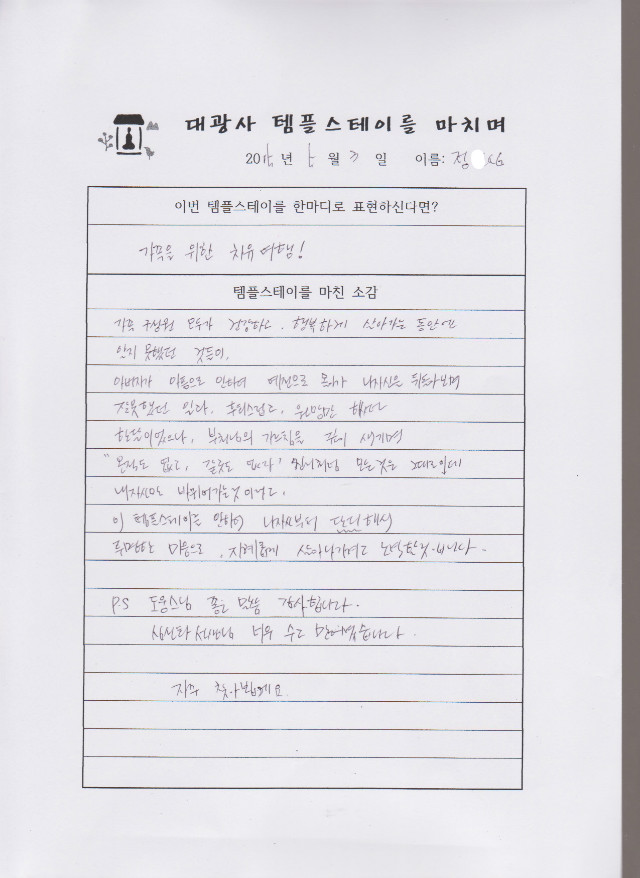 대광사 템플스테이를 마치며
201 년 월 3 일 이름: 정
이번 템플스테이를 한마디로 표현하신다면?
가족을 위한 치유 여행!
템플스테이를 마친 소감
가족 구성원 모두가 건강하고, 행복하게 살아가는 동안에
알지 못했던 것들이,
아버지가 이 으로 인하여 예전으로 돌아가 나자신을 뒤돌아보며
잘못했던 일과, 후회스럽고, 원망만 했던
한탄이었으나, 부처님의 가르침을 깊이 새기며
모든것은 그대로인데
내자신만 바뀌어가는것 이었고,
이 템플스테이로 인하여 나자신부터 단단해져
투명한 마음으로, 지혜롭게 살아나가려고 노력할것 입니다.
P.S 도웅스님 좋은 말씀 감사합니다.
너무 수고 많으셨습니다.
자주 찾아뵐께요.